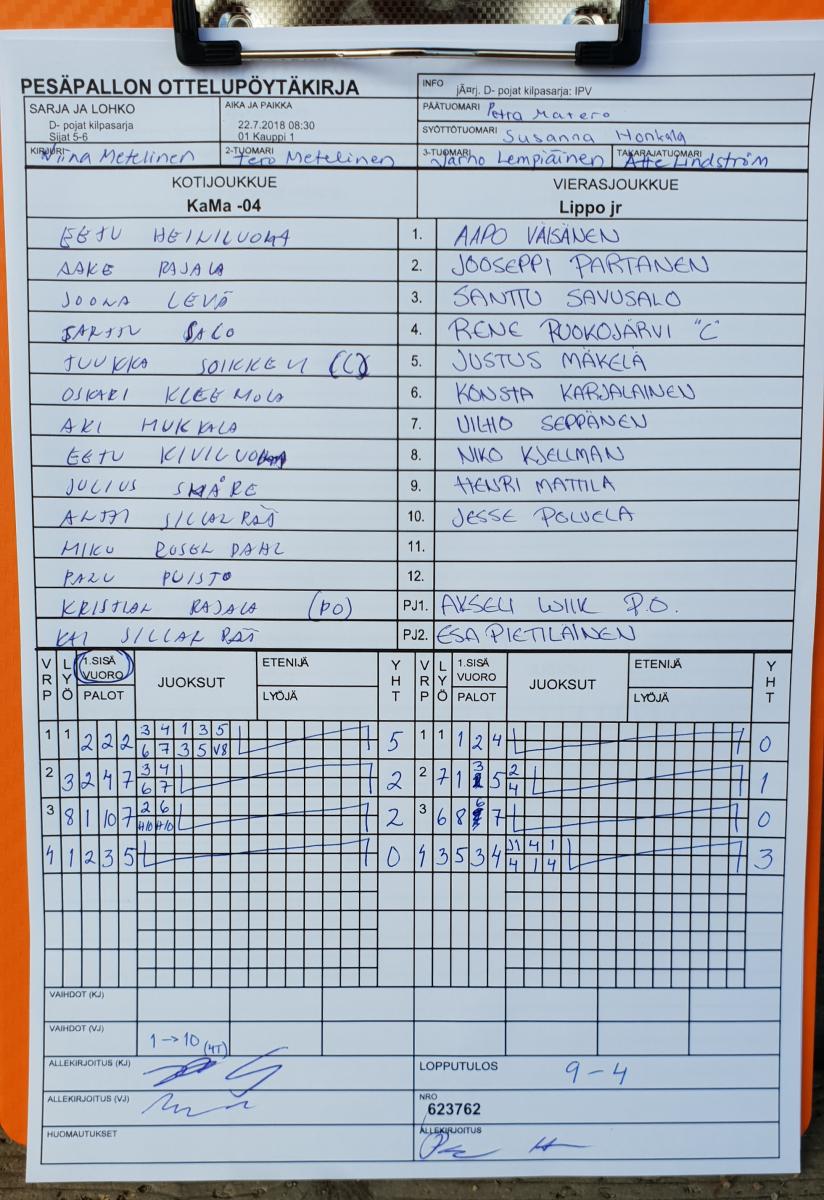 PESÄPALLON OTTELUPÖYTÄKIRJA
INFO jÃ¤rj. D- pojat kilpasarja: IPV
SARJA JA LOHKO
D- pojat kilpasarja
Sijat 5-6
AIKA JA PAIKKA
22.7.2018 08:30
01 Kauppi 1
PÄÄTUOMARI Petra Matero
SYÖTTÖTUOMARI Susanna Honkala
KIRJURI Niina Metelinen
2-TUOMARI Tero Metelinen
3-TUOMARI Jarno Lempiäinen
TAKARAJATUOMARI Atte Lindström
KOTIJOUKKUE VIERASJOUKKUE
KaMa -04 Lippo jr
EETU HEINILUOMA 1. AAPO VÄISÄNEN
AAKE RAJALA 2. JOOSEPPI PARTANEN
JOONA LEVÄ 3. SANTTU SAVUSALO
SANTTU SALO 4. RENE RUOKOJÄRVI "C"
JUUKKA SOIKKELI (C) 5. JUSTUS MÄKELÄ
OSKARI KLEEMOLA 6. KONSTA KARJALAINEN
AKI MUKKALA 7. VILHO SEPPÄNEN
EETU KIVILUOMA 8. NIKO KJELLMAN
JULIUS SKÅRE 9. HENRI MATTILA
ANTTI SILLANPÄÄ 10. JESSE POLVELA
MIKU ROSENDAHL 11.
PAZU PUISTO 12.
KRISTIAN RAJALA (PO) PJ1. AKSELI WIIK P.O.
KAI SILLANPÄÄ PJ2. ESA PIETILÄINEN
VRP LYÖ 1.SISÄ VUORO PALOT JUOKSUT ETENIJÄ LYÖJÄ YHT VRP LYÖ 1.SISÄ VUORO PALOT JUOKSUT ETENIJÄ LYÖJÄ YHT
1 1 2 2 2 3 4 1 3 5 5 1 1 1 2 4 0
6 7 3 5 V8
2 3 2 4 7 3 4 2 2 7 1 3 5 2 1
6 7 4
3 8 1 10 7 2 6 2 3 6 8 6 7 0
H10 H10
4 1 2 3 5 0 4 3 5 3 4 J1 4 1 3
4 1 4
VAIHDOT (KJ)
VAIHDOT (VJ) 1→10 (4T)
ALLEKIRJOITUS (KJ)
LOPPUTULOS 9-4
ALLEKIRJOITUS (VJ)
NRO
623762
HUOMAUTUKSET
ALLEKIRJOITUS